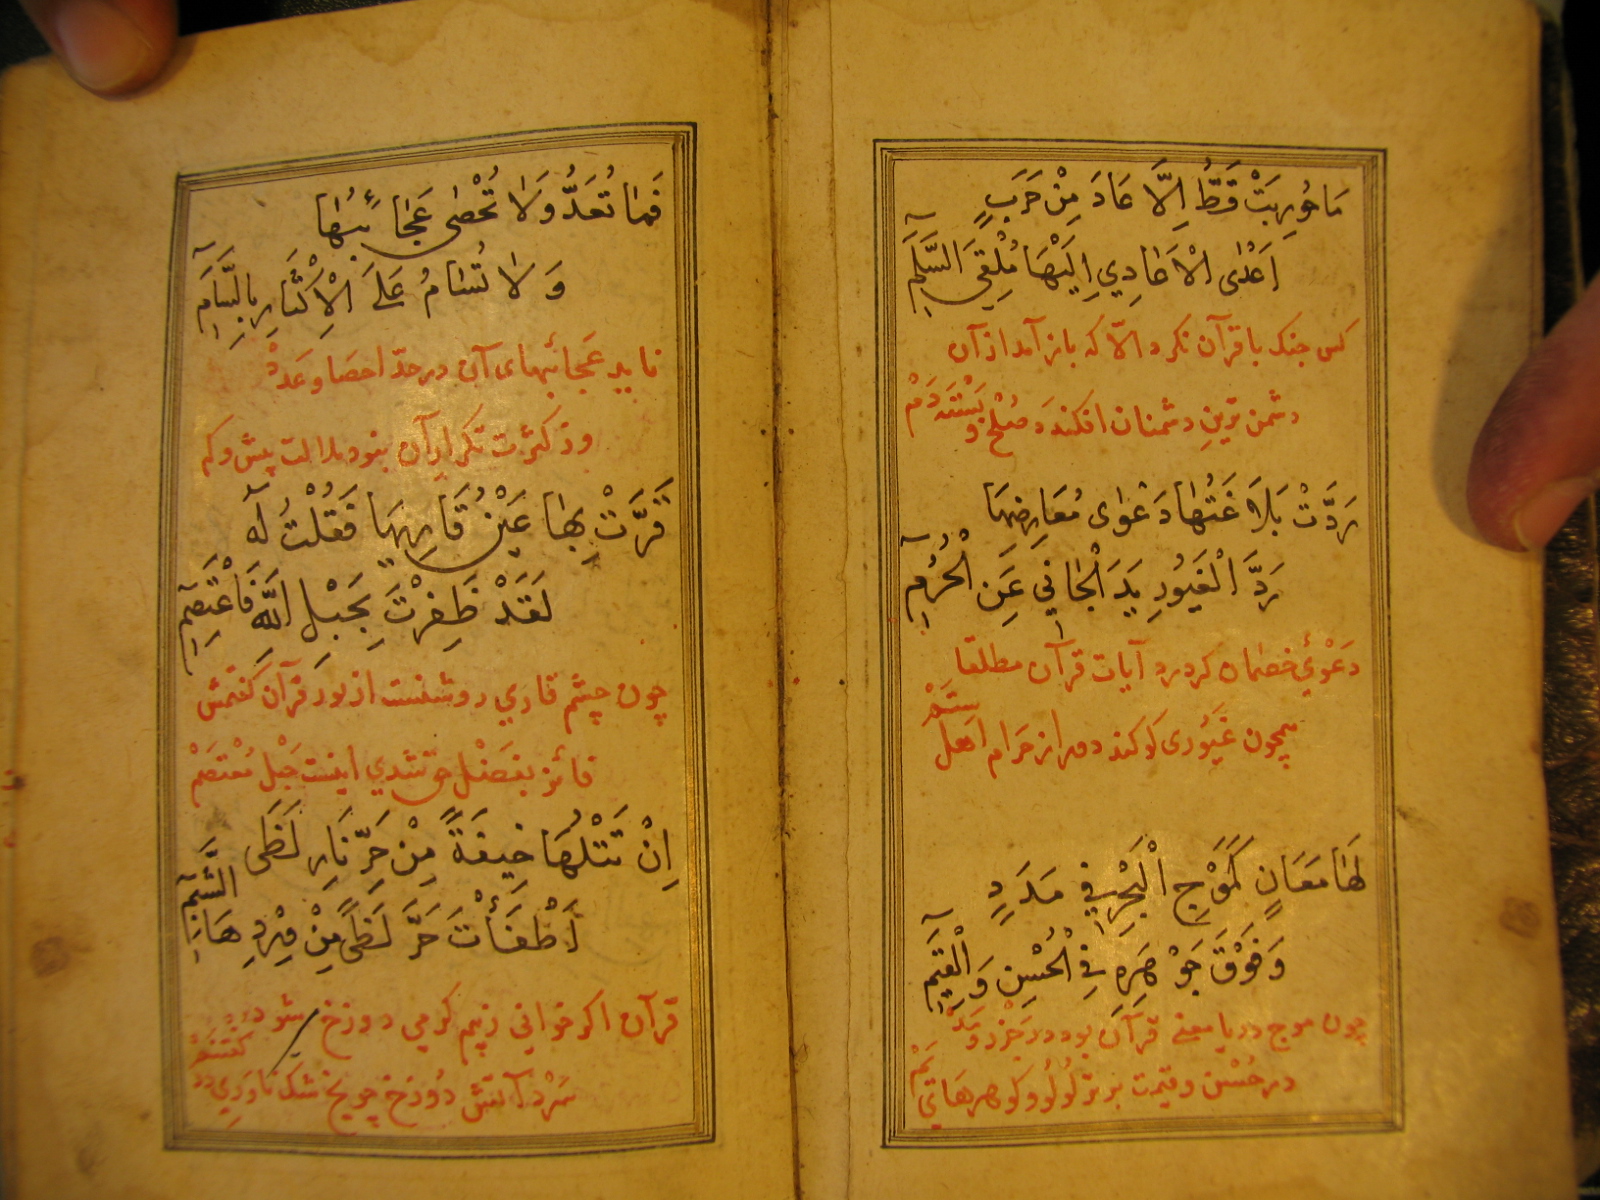 مَا حُورِبَتْ قَطُّ اِلَّا عَادَ مِنْ حَرَبٍ
اَعْدٰى الْاَعَادِي اِلَيْهَا مُلْقِيَ السَّلَمِ
كس جنك با قرآن نكرد الّا كه باز آمد از آن
دشمن ترين دشمنان افكنده صُلْح و
رَدَّتْ بَلَاغَتُهَا دَعْوٰى مُعَارِضِهَا
رَدَّ الْغَيُورِ يَدَ الْجَانِي عَنِ الْحُرُمِ
دَعْوٰئ خصمان كرد رد آيات قرآن مطلقا
همچون غَيُورى كو كند دور از حَرام اهل ستم
لَهَا مَعَانٍ كَمَوْجِ الْبَحْرِ فِي مَدَدٍ
وَفَوْقَ جَوْهَرِهِ فِي الْحُسْنِ وَالْقِيَمِ
چون موج دريا معنى قرآن بود در جزر و مَدّ
در حُسْن و قيمت برتر از لؤلؤ و گوهرهاى يَمّ
فَمَا تُعَدُّ وَلَا تُحْصٰى عَجَائِبُهَا
وَلَا تُسَامُ عَلَى الْاِكْثَارِ بِالسَّأَمِ
نايد عَجائبهاى آن در حدّ احصا و عَدْ
وز كثرت تكرار آن نبود ملالت بيش و كم
قَرَّتْ بِهَا عَيْنُ قَارِيهَا فَقُلْتُ لَهُ
لَقَدْ ظَفِرْتَ بِحَبْلِ اللّٰهِ فَاعْتَصِمِ
چون چشم قاري روشنست از نور قرآن گفتمش
فائز بفَضْل حق شدي اينست حَبْل مُعْتَصَمْ
اِنْ تَتْلُهَا خِيفَةً مِنْ حَرِّ نَارِ لَظٰى
اَطْفَأْتَ حَرَّ لَظًى مِنْ وِرْدِهَا الشَّبِمِ
قرآن اگر خواني زبيم گرمي دوزخ شود
سَرْد آتش دُوزخ چو يخ